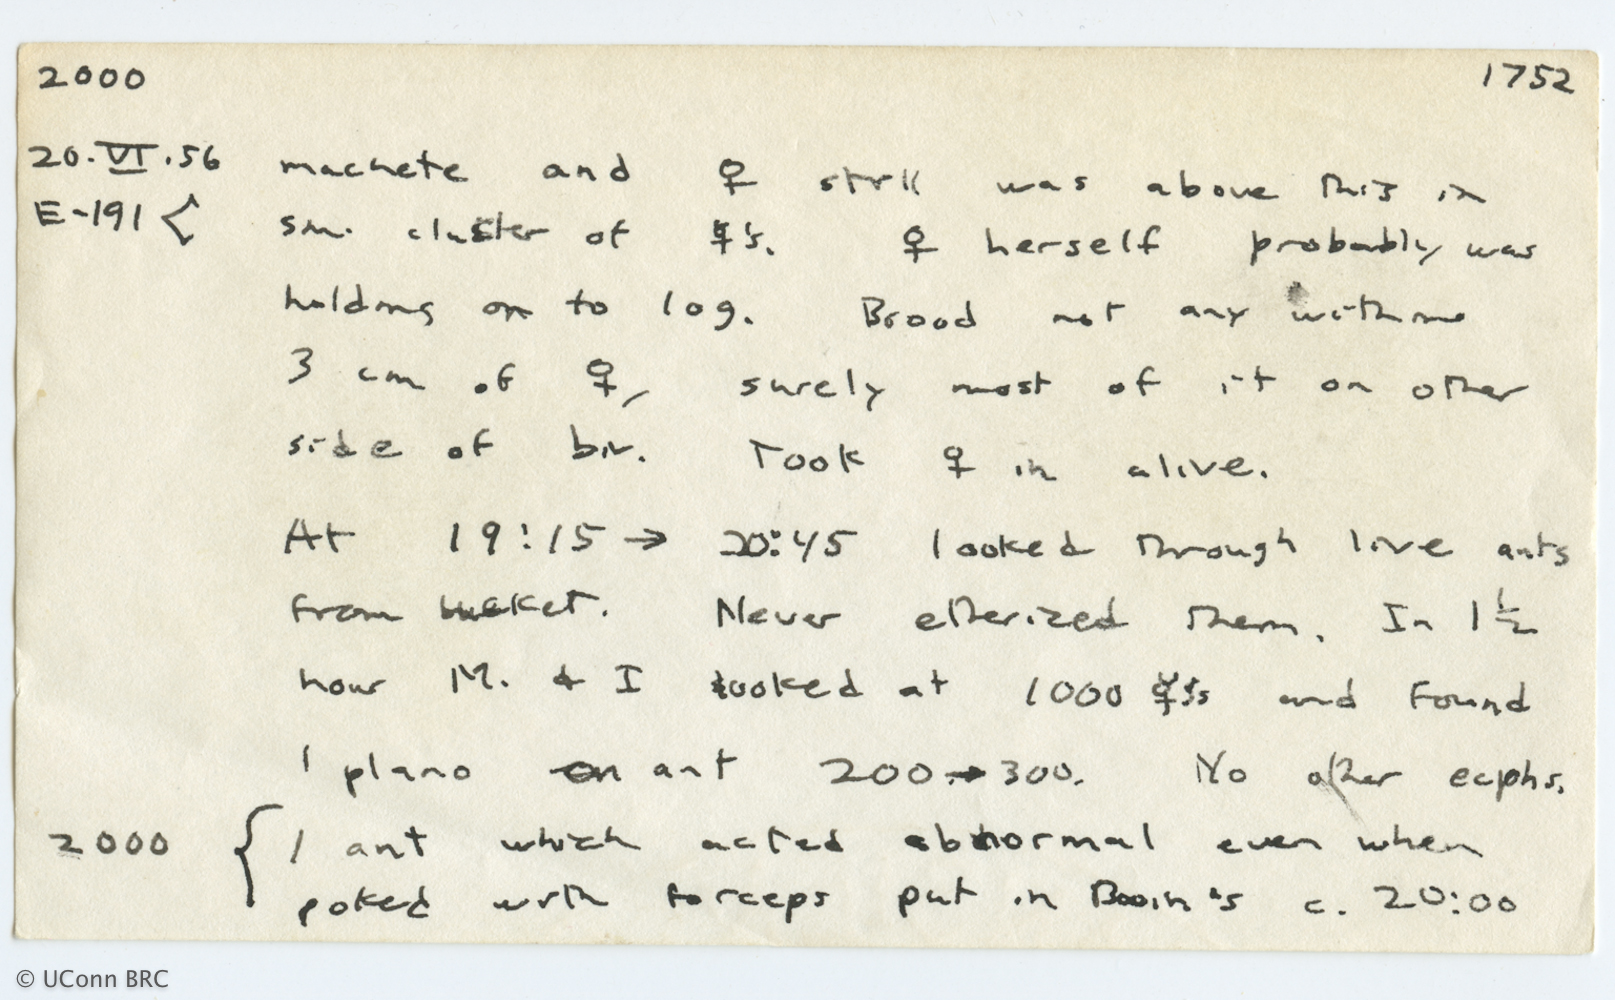 2000 1752
20.VI.56 machete and ♀ still was above this in
E-191 { sm. cluster of ☿'s. ♀ herself probably was
holding on to log. Brood not any within
3 cm of ♀, surely most of it on other
side of biv. Took ♀ in alive.
At 19:15 → 20:45 looked through live ants
from bucket. Never etherized them. In 1 1/2
hour M. & I looked at 1000 ☿'s and found
1 plano on ant 200 → 300. No other ecphs.
2000 { 1 ant which acted abnormal even when
poked with forceps put in Bouin's c. 20:00
© UConn BRC